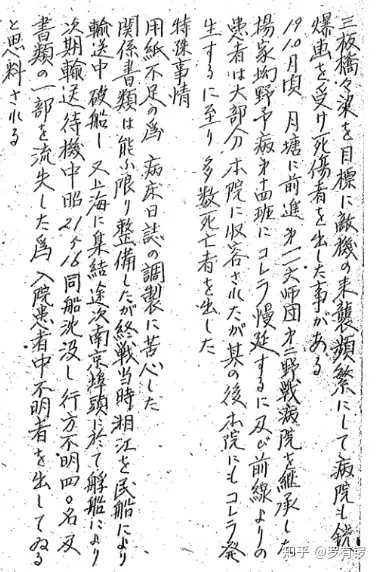 三板橋々梁を目標に敵機の来襲頻繁にして病院も銃
爆撃を受け死傷者を出した事がある
19.10月頃 月塘に前進 第一一六師団第二野戦病院を継承した
楊家坳野予病第十四班にコレラ慢延するに及び前線よりの
患者は大部分本院に収容されたが其の後本院にもコレラ発
生するに至り多数死亡者を出した
特殊事情
用紙不足の為 病床日誌の調製に苦心した
関係書類は能ふ限り整備したが終戦当時湘江を民船により
輸送中破船し 又上海に集結途次南京埠頭に於て艀船により
次期輸送待機中昭21.5.16同船沈没し行方不明四〇名及
書類の一部を流失した為 入院患者中不明者を出してゐる
と思料される
知乎 @罗有锣